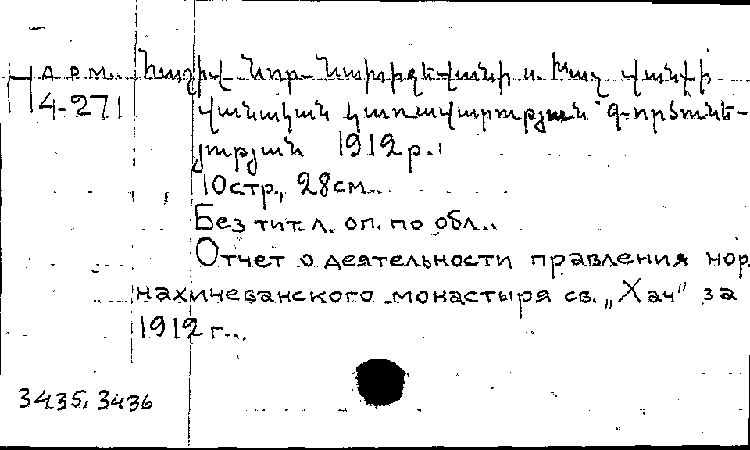 Арм. Հաշիվ Նոր-Նախիջեվանի ս. Խաչ վանքի
4-271 վանական կառավարության գործունե-
ության 1912 թ.
10стр., 28см.
Без тит. л. оп. по обл.
Отчет о деятельности правления нор
нахичеванского монастыря св. „Хач" за
1912 г.
3435, 3436